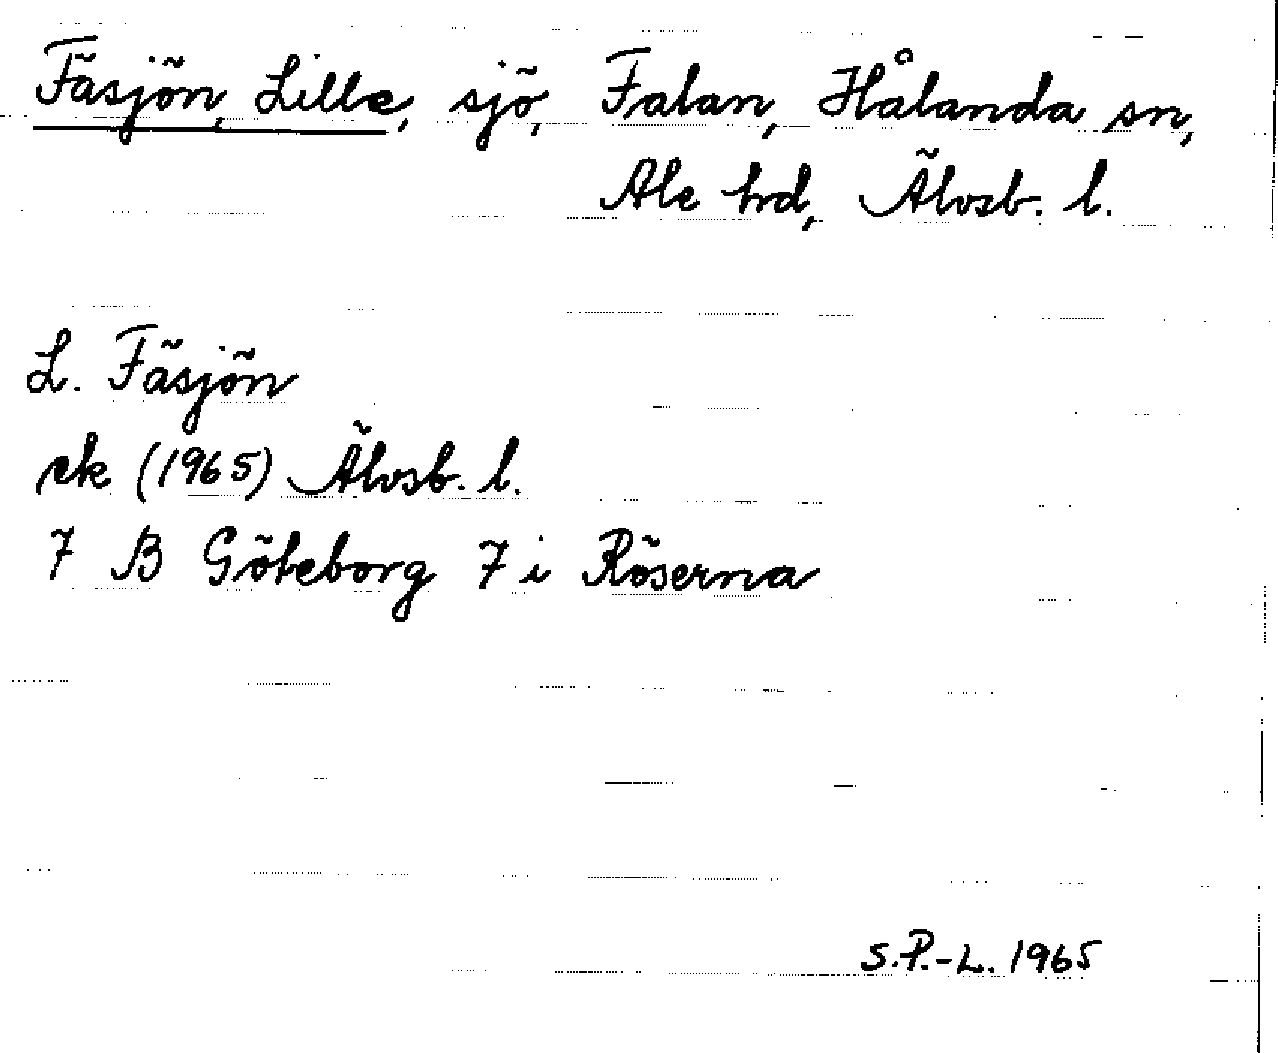 Fäsjön, Lille, sjö, Falan, Hålanda sn,
Ale hd, Älvsb. l.
L. Fäsjön
ek (1965) Älvsb. l.
7 B Göteborg 7 i Röserna
S.P.-L. 1965